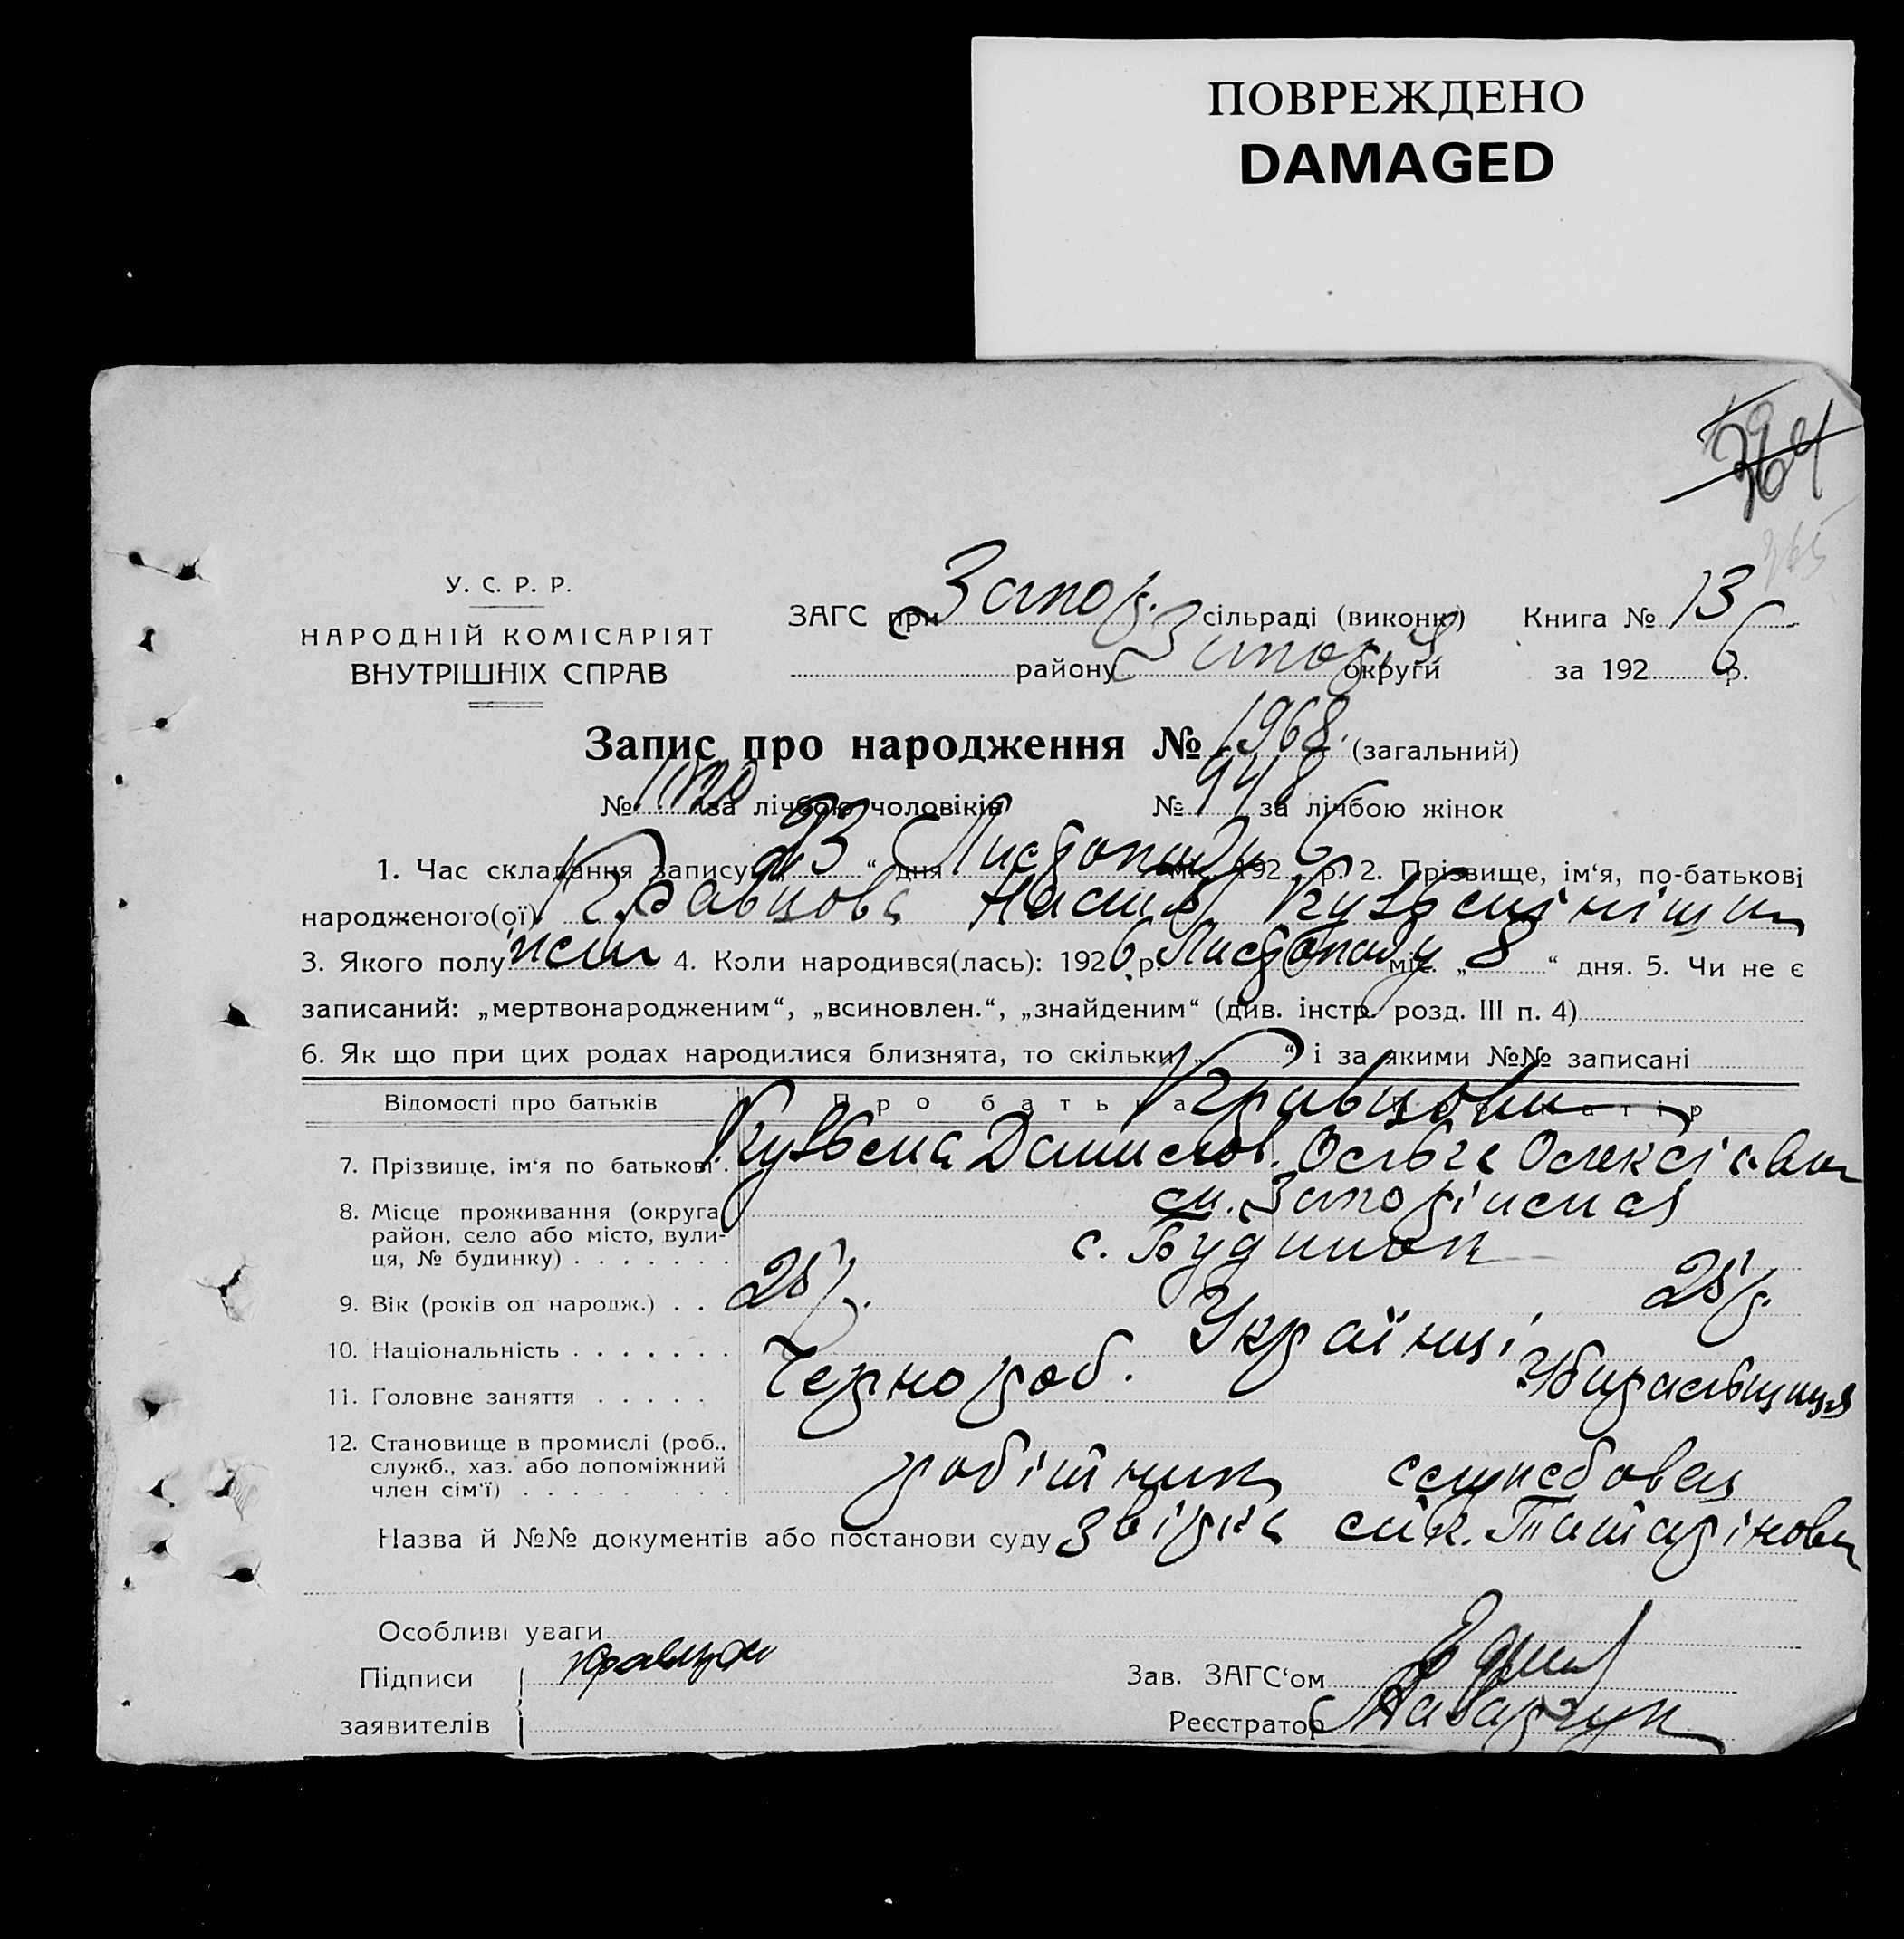 ПОВРЕЖДЕНО
DAMAGED
364
365
У. С. Р. Р.
НАРОДНІЙ КОМІСАРІЯТ
ВНУТРІШНІХ СПРАВ
ЗАГС при Запор. сільраді (виконк.) Книга № 13
району Запоріз округи за 1926 р.
Запис про народження № 1968 (загальний)
№ 1020 за лічбою чоловіків № 948 за лічбою жінок
1. Час складання запису „23“ дня Листопаду міс. 1926 р. 2. Прізвище, ім‘я, по-батькові
народженого(ої) Кравцова Настя Кузьминішна
3. Якого полу жін 4. Коли народився(лась): 1926 р. Листопаду міс. „8“ дня. 5. Чи не є
записаний: „мертвонародженим“, „всиновлен.“, „знайденим“ (див. інстр. розд. III п. 4)
6. Як що при цих родах народилися близнята, то скільки „ “ і за якими №№ записані
Відомості про батьків Про батька Про матір
Кравцови
7. Прізвище, ім‘я по батькові. Кузьма Данилов. Ольга Олексієвна
8. Місце проживання (округа, район, село або місто, вули-
ця, № будинку) ст. Запоріжжя
9. Вік (років од народж.) 25 р. 25 р.
10. Національність Українці
11. Головне заняття Чернороб. Убиральщиця
12. Становище в промислі (роб.,
служб., хаз. або допоміжний
член сім'ї) робітник службовая
Назва й №№ документів або постанови суду Звірка
Особливі уваги
Підписи Кравцов Зав. ЗАГС‘ом
заявителів Реєстратор